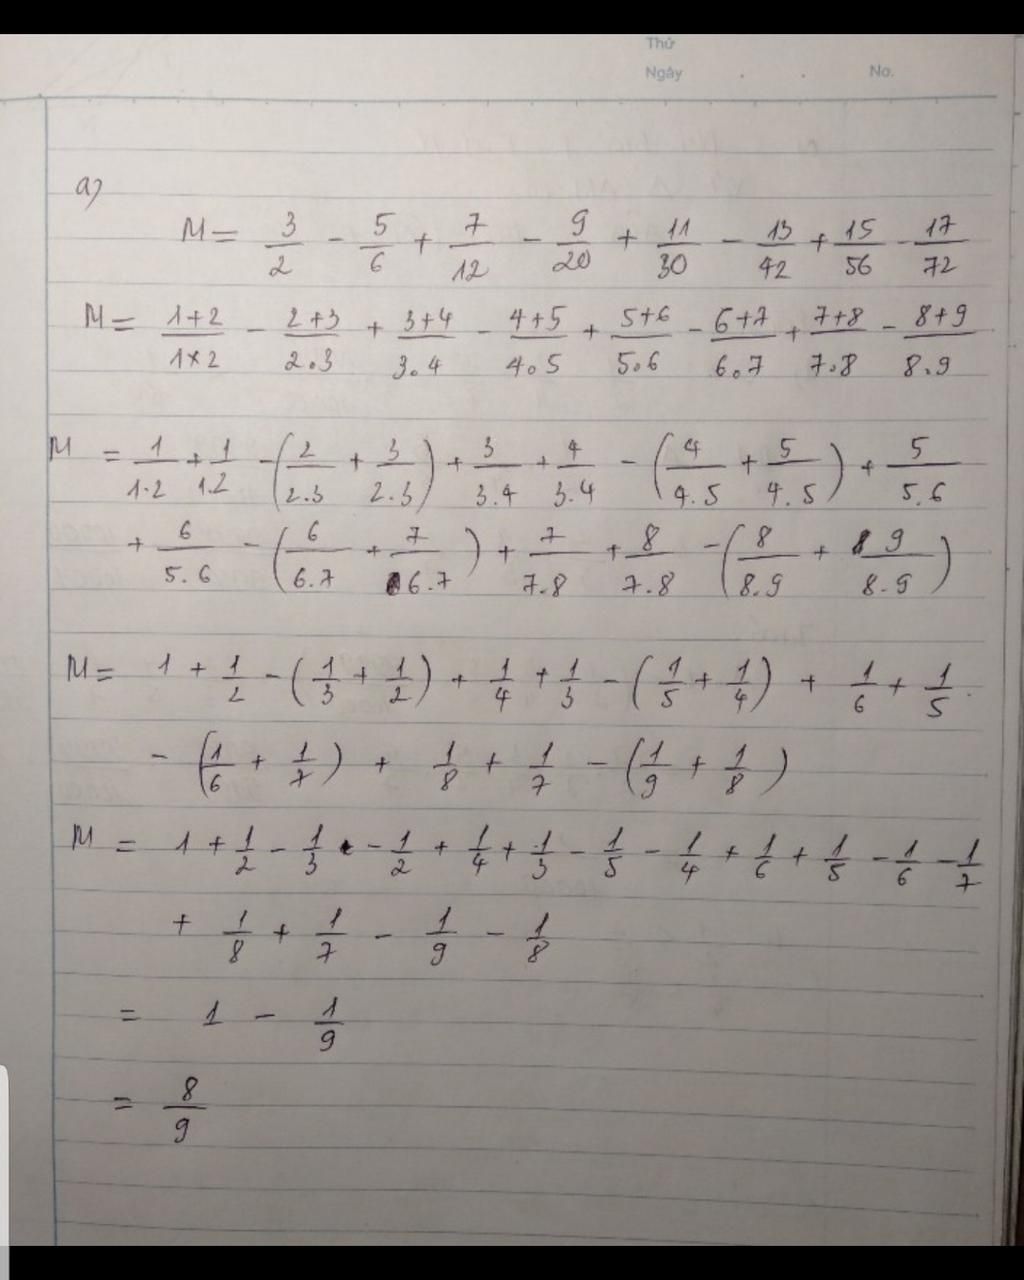 Thứ
Ngày . . No.
a)
M = 3/2 - 5/6 + 7/12 - 9/20 + 11/30 - 13/42 + 15/56 - 17/72
M = (1+2)/(1×2) - (2+3)/(2.3) + (3+4)/(3.4) - (4+5)/(4.5) + (5+6)/(5.6) - (6+7)/(6.7) + (7+8)/(7.8) - (8+9)/(8.9)
M = 1/1.2 + 1/1.2 - (2/2.3 + 3/2.3) + 3/3.4 + 4/3.4 - (4/4.5 + 5/4.5) + 5/5.6
+ 6/5.6 - (6/6.7 + 7/6.7) + 7/7.8 + 8/7.8 - (8/8.9 + 9/8.9)
M = 1 + 1/2 - (1/3 + 1/2) + 1/4 + 1/3 - (1/5 + 1/4) + 1/6 + 1/5
- (1/6 + 1/7) + 1/8 + 1/7 - (1/9 + 1/8)
M = 1 + 1/2 - 1/3 - 1/2 + 1/4 + 1/3 - 1/5 - 1/4 + 1/6 + 1/5 - 1/6 - 1/7
+ 1/8 + 1/7 - 1/9 - 1/8
= 1 - 1/9
= 8/9